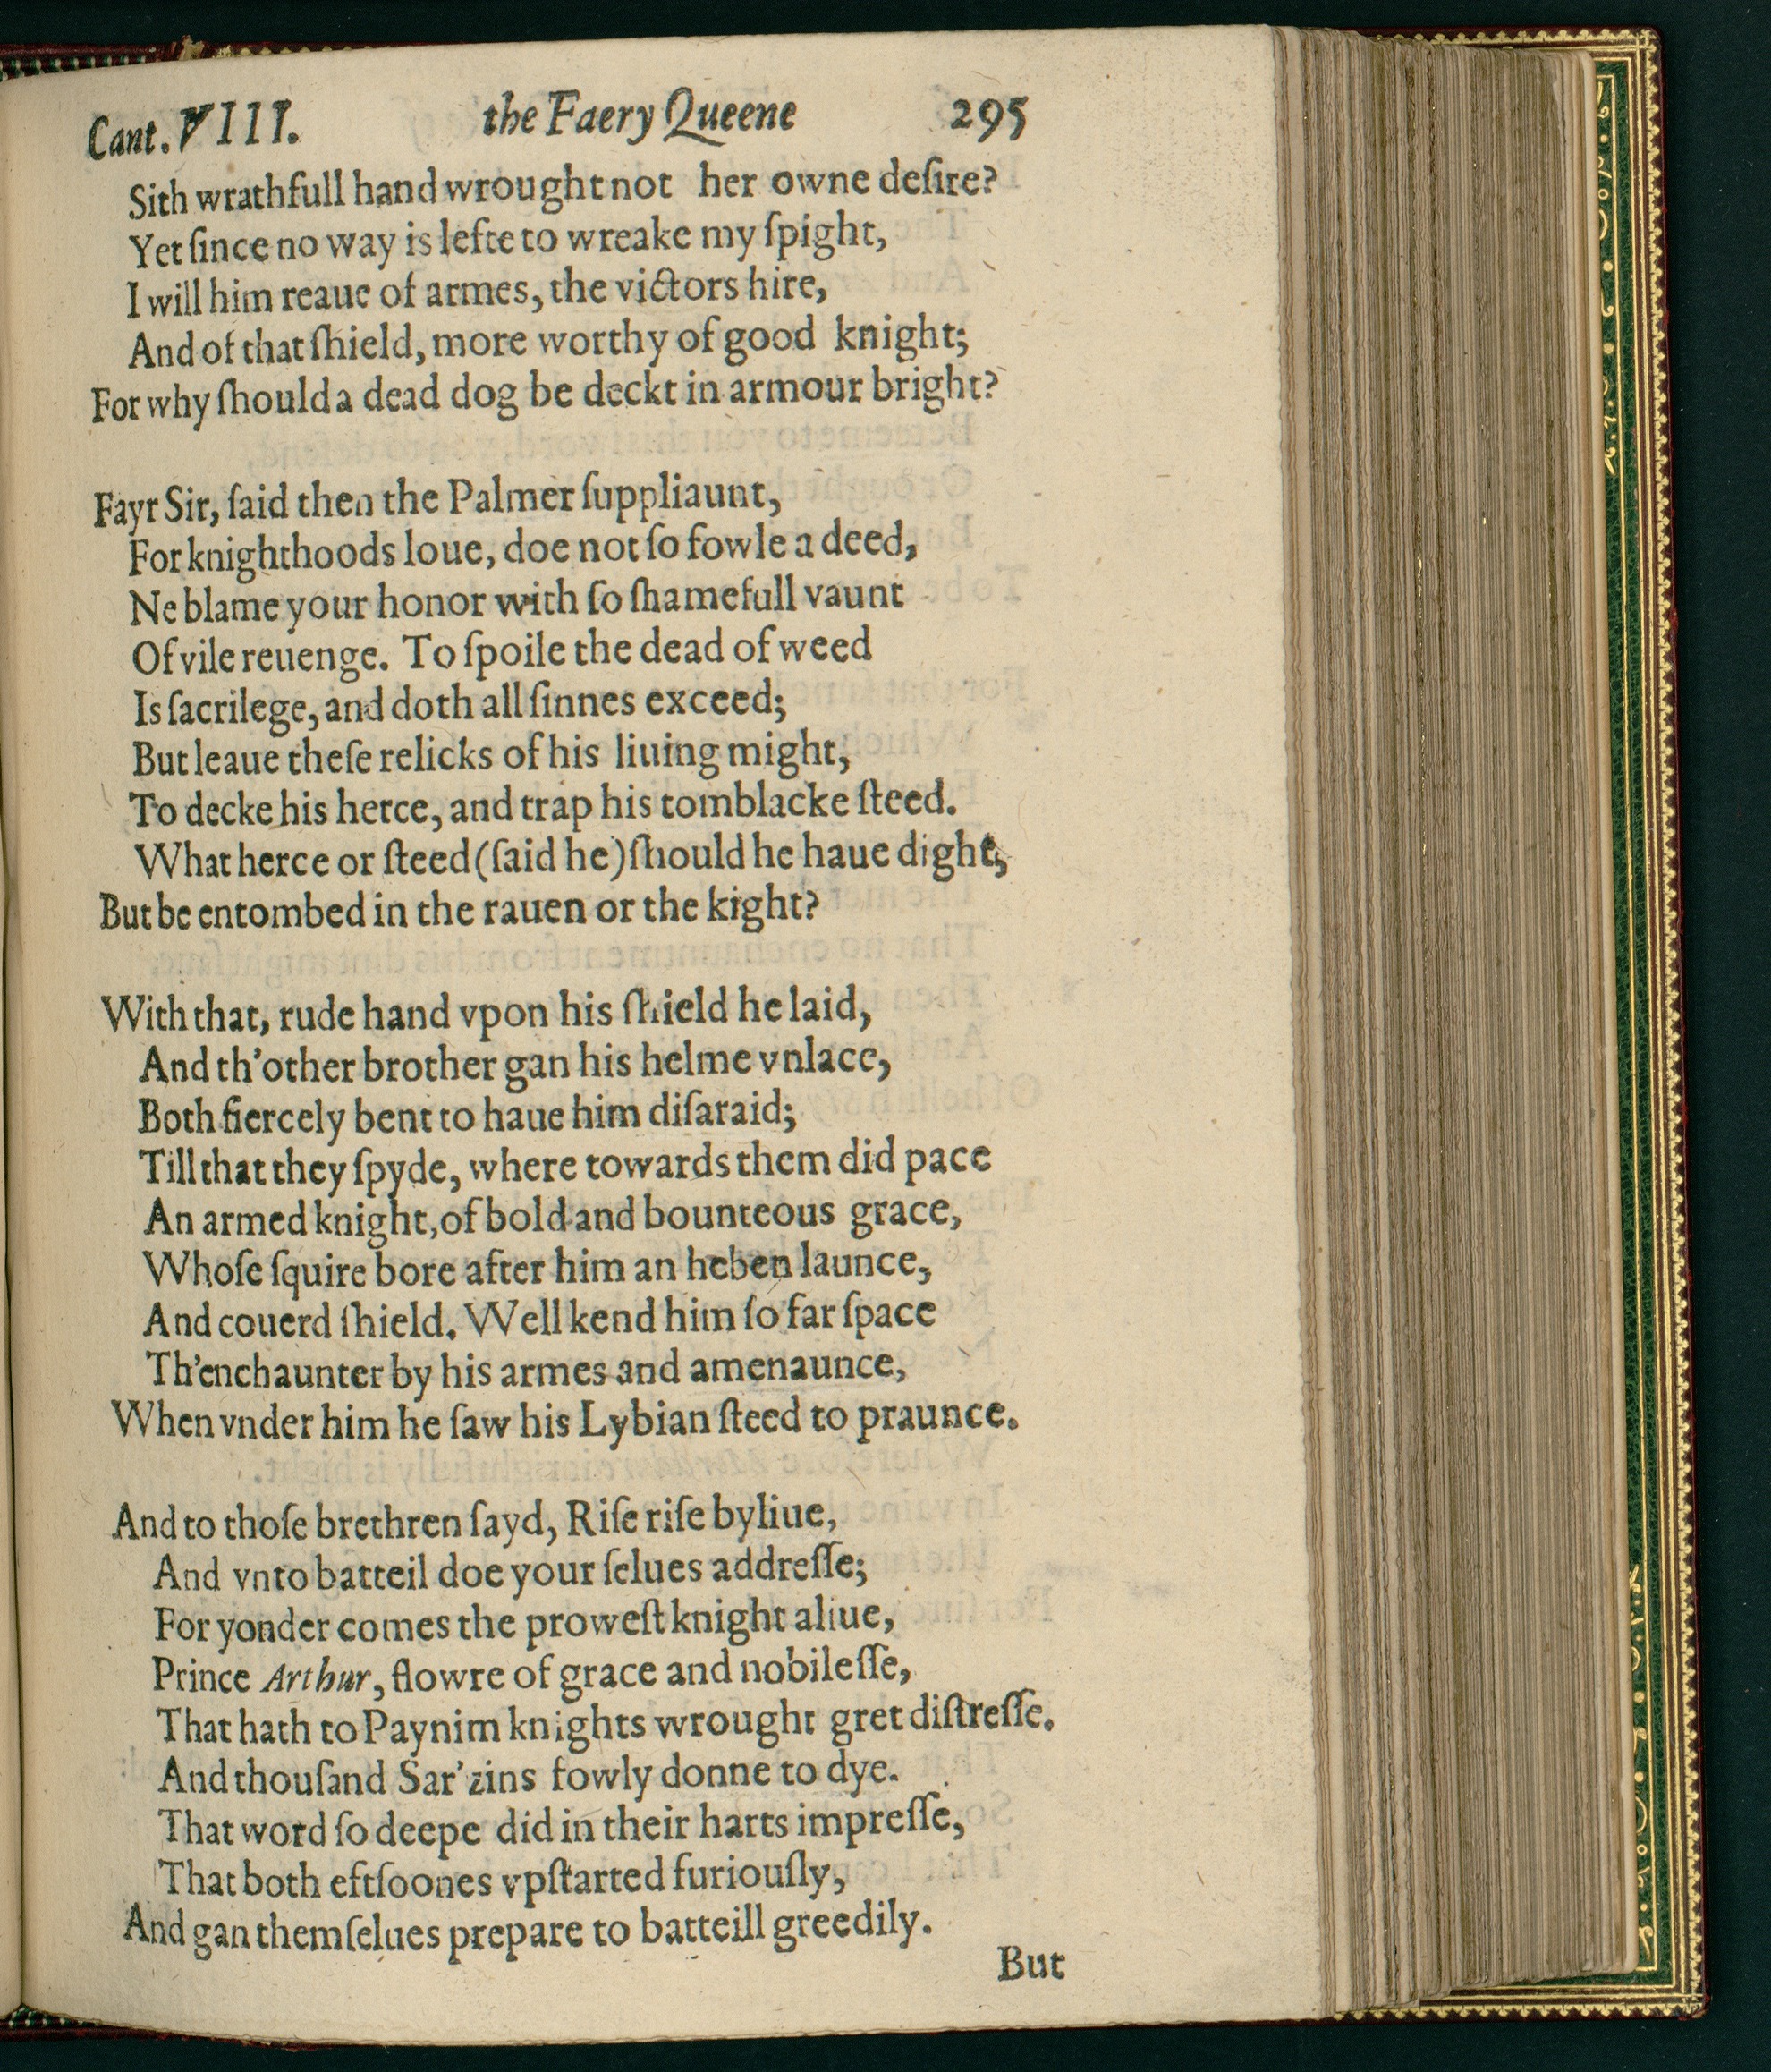 Cant. VIII. the Faery Queene 295
Sith wrathfull hand wrought not her owne deſire?
Yet ſince no way is lefte to wreake my ſpight,
I will him reaue of armes, the victors hire,
And of that ſhield, more worthy of good knight;
For why ſhould a dead dog be deckt in armour bright?
Fayr Sir, ſaid then the Palmer ſuppliaunt,
For knighthoods loue, doe not ſo fowle a deed,
Ne blame your honor with ſo ſhamefull vaunt
Of vile reuenge. To ſpoile the dead of weed
Is ſacrilege, and doth all ſinnes exceed;
But leaue theſe relicks of his liuing might,
To decke his herce, and trap his tomblacke ſteed.
What herce or ſteed (ſaid he) ſhould he haue dight,
But be entombed in the rauen or the kight?
With that, rude hand vpon his ſhield he laid,
And th'other brother gan his helme vnlace,
Both fiercely bent to haue him diſaraid;
Till that they ſpyde, where towards them did pace
An armed knight, of bold and bounteous grace,
Whoſe ſquire bore after him an heben launce,
And couerd ſhield. Well kend him ſo far ſpace
Th'enchaunter by his armes and amenaunce,
When vnder him he ſaw his Lybian ſteed to praunce.
And to thoſe brethren ſayd, Riſe riſe byliue,
And vnto batteil doe your ſelues addreſſe;
For yonder comes the proweſt knight aliue,
Prince Arthur, flowre of grace and nobileſſe,
That hath to Paynim knights wrought gret diſtreſſe.
And thouſand Sar'zins fowly donne to dye.
That word ſo deepe did in their harts impreſſe,
That both eftſoones vpſtarted furiouſly,
And gan themſelues prepare to batteill greedily.
But